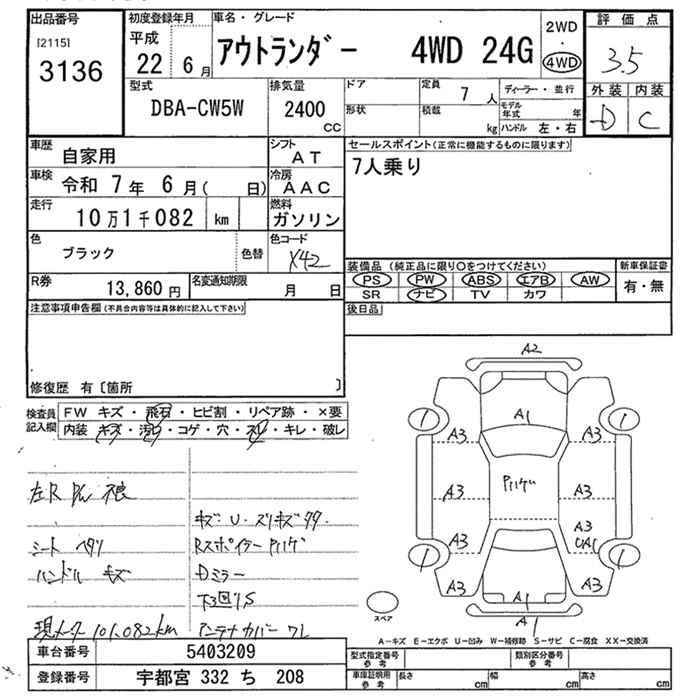 出品番号
[2115]
3136
初度登録年月
平成
22 年 6 月
車名・グレード
アウトランダー 4WD 24G
2WD
・
4WD
評価点
3.5
外装 内装
D C
型式
DBA-CW5W
排気量
2400
CC
ドア
形状
定員
7 人
積載
kg
ディーラー・並行
モデル年式 年
ハンドル 左・右
車歴
自家用
シフト
AT
車検
令和 7 年 6 月( 日)
冷房
AAC
走行
10万1千082 km
燃料
ガソリン
色
ブラック
色替
色コード
X42
R券
13,860 円
名変通知期限
月 日
セールスポイント(正常に機能するものに限ります)
7人乗り
装備品 (純正品に限り○をつけてください)
PS PW ABS エアB AW
SR ナビ TV カワ
新車保証書
有・無
後日品
注意事項申告欄(不具合内容等は具体的に記入して下さい)
修復歴 有〔箇所 〕
検査員記入欄
FW キズ・飛石・ヒビ割・リペア跡・×要
内装・キズ・汚れ・コゲ・穴・スレ・キレ・破レ
左R 不良
シート ヘタリ
ハンドル キズ
現メーター 101,082km
キズ・U・スリキズ
Rスポイラー
Dミラー
下回りS
アンテナカバー
A2
A1
A3 A3
A3 A3
A3
A3
UA1
A3 A3
A1
A1
スペア
A－キズ E－エクボ U－凹み W－補修跡 S－サビ C－腐食 XX－交換済
車台番号
5403209
登録番号
宇都宮 332 ち 208
型式指定番号
参考
類別区分番号
参考
車庫証明用
参考
長さ cm
幅 cm
高さ cm